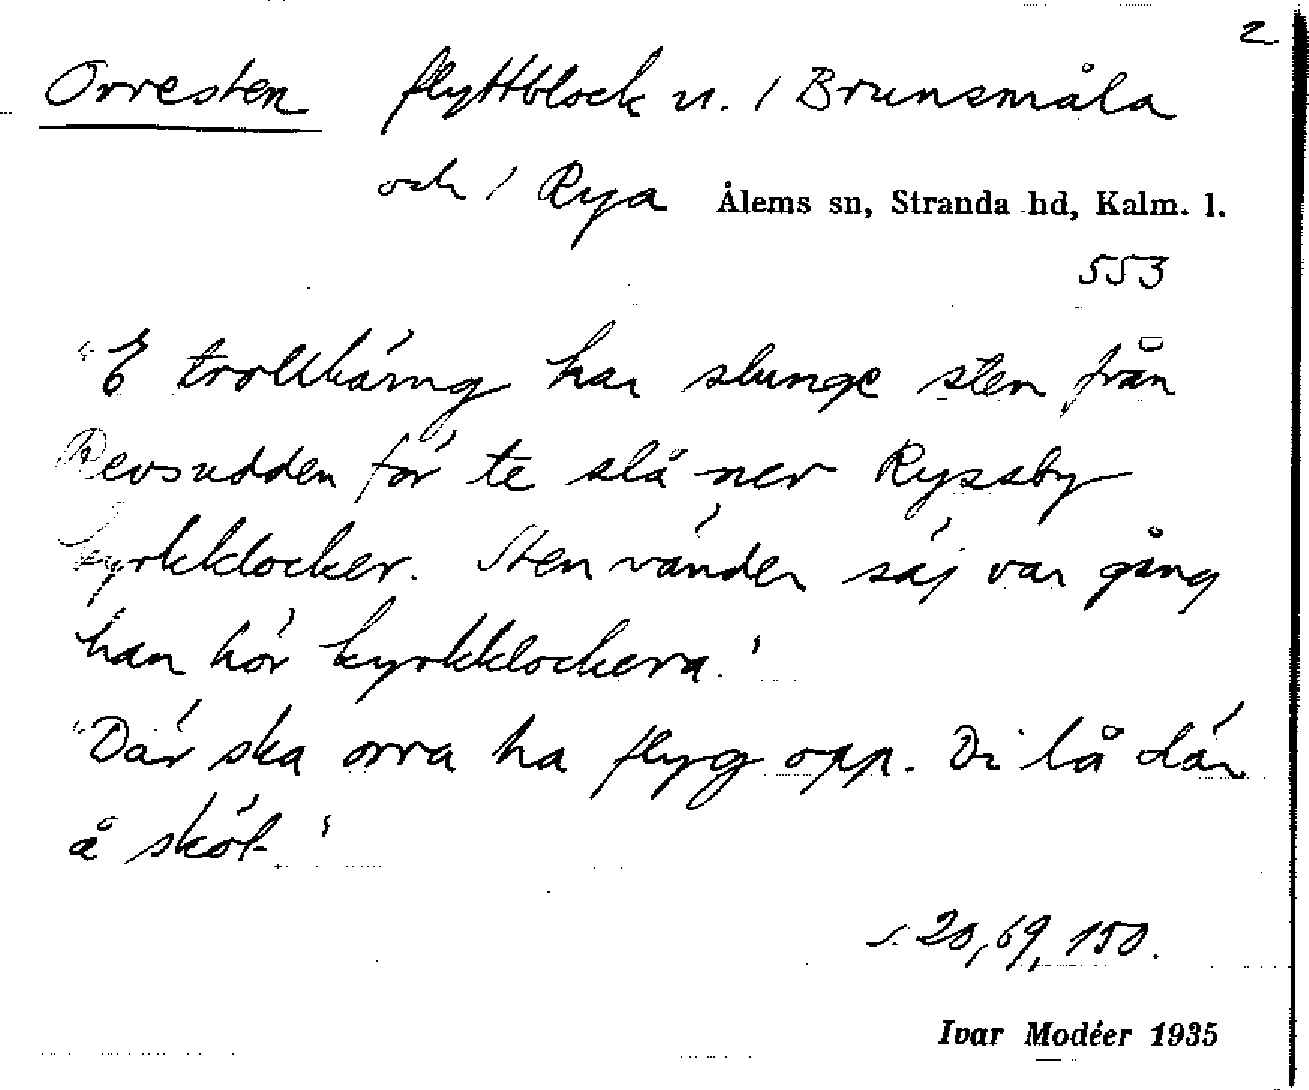 2
Orresten flyttblock n. / Brunsmåla
och / Rya Ålems sn, Stranda hd, Kalm. l.
553
"E trollkäring har slunge sten från
Revsudden för te slå ner Ryssby
kyrkklocker. Sten vänder säj var gång
han hör kyrkklockera."
"Där ska orra ha flyg opp. Di lå där
å sköt"
s. 20, 69, 150.
Ivar Modéer 1935